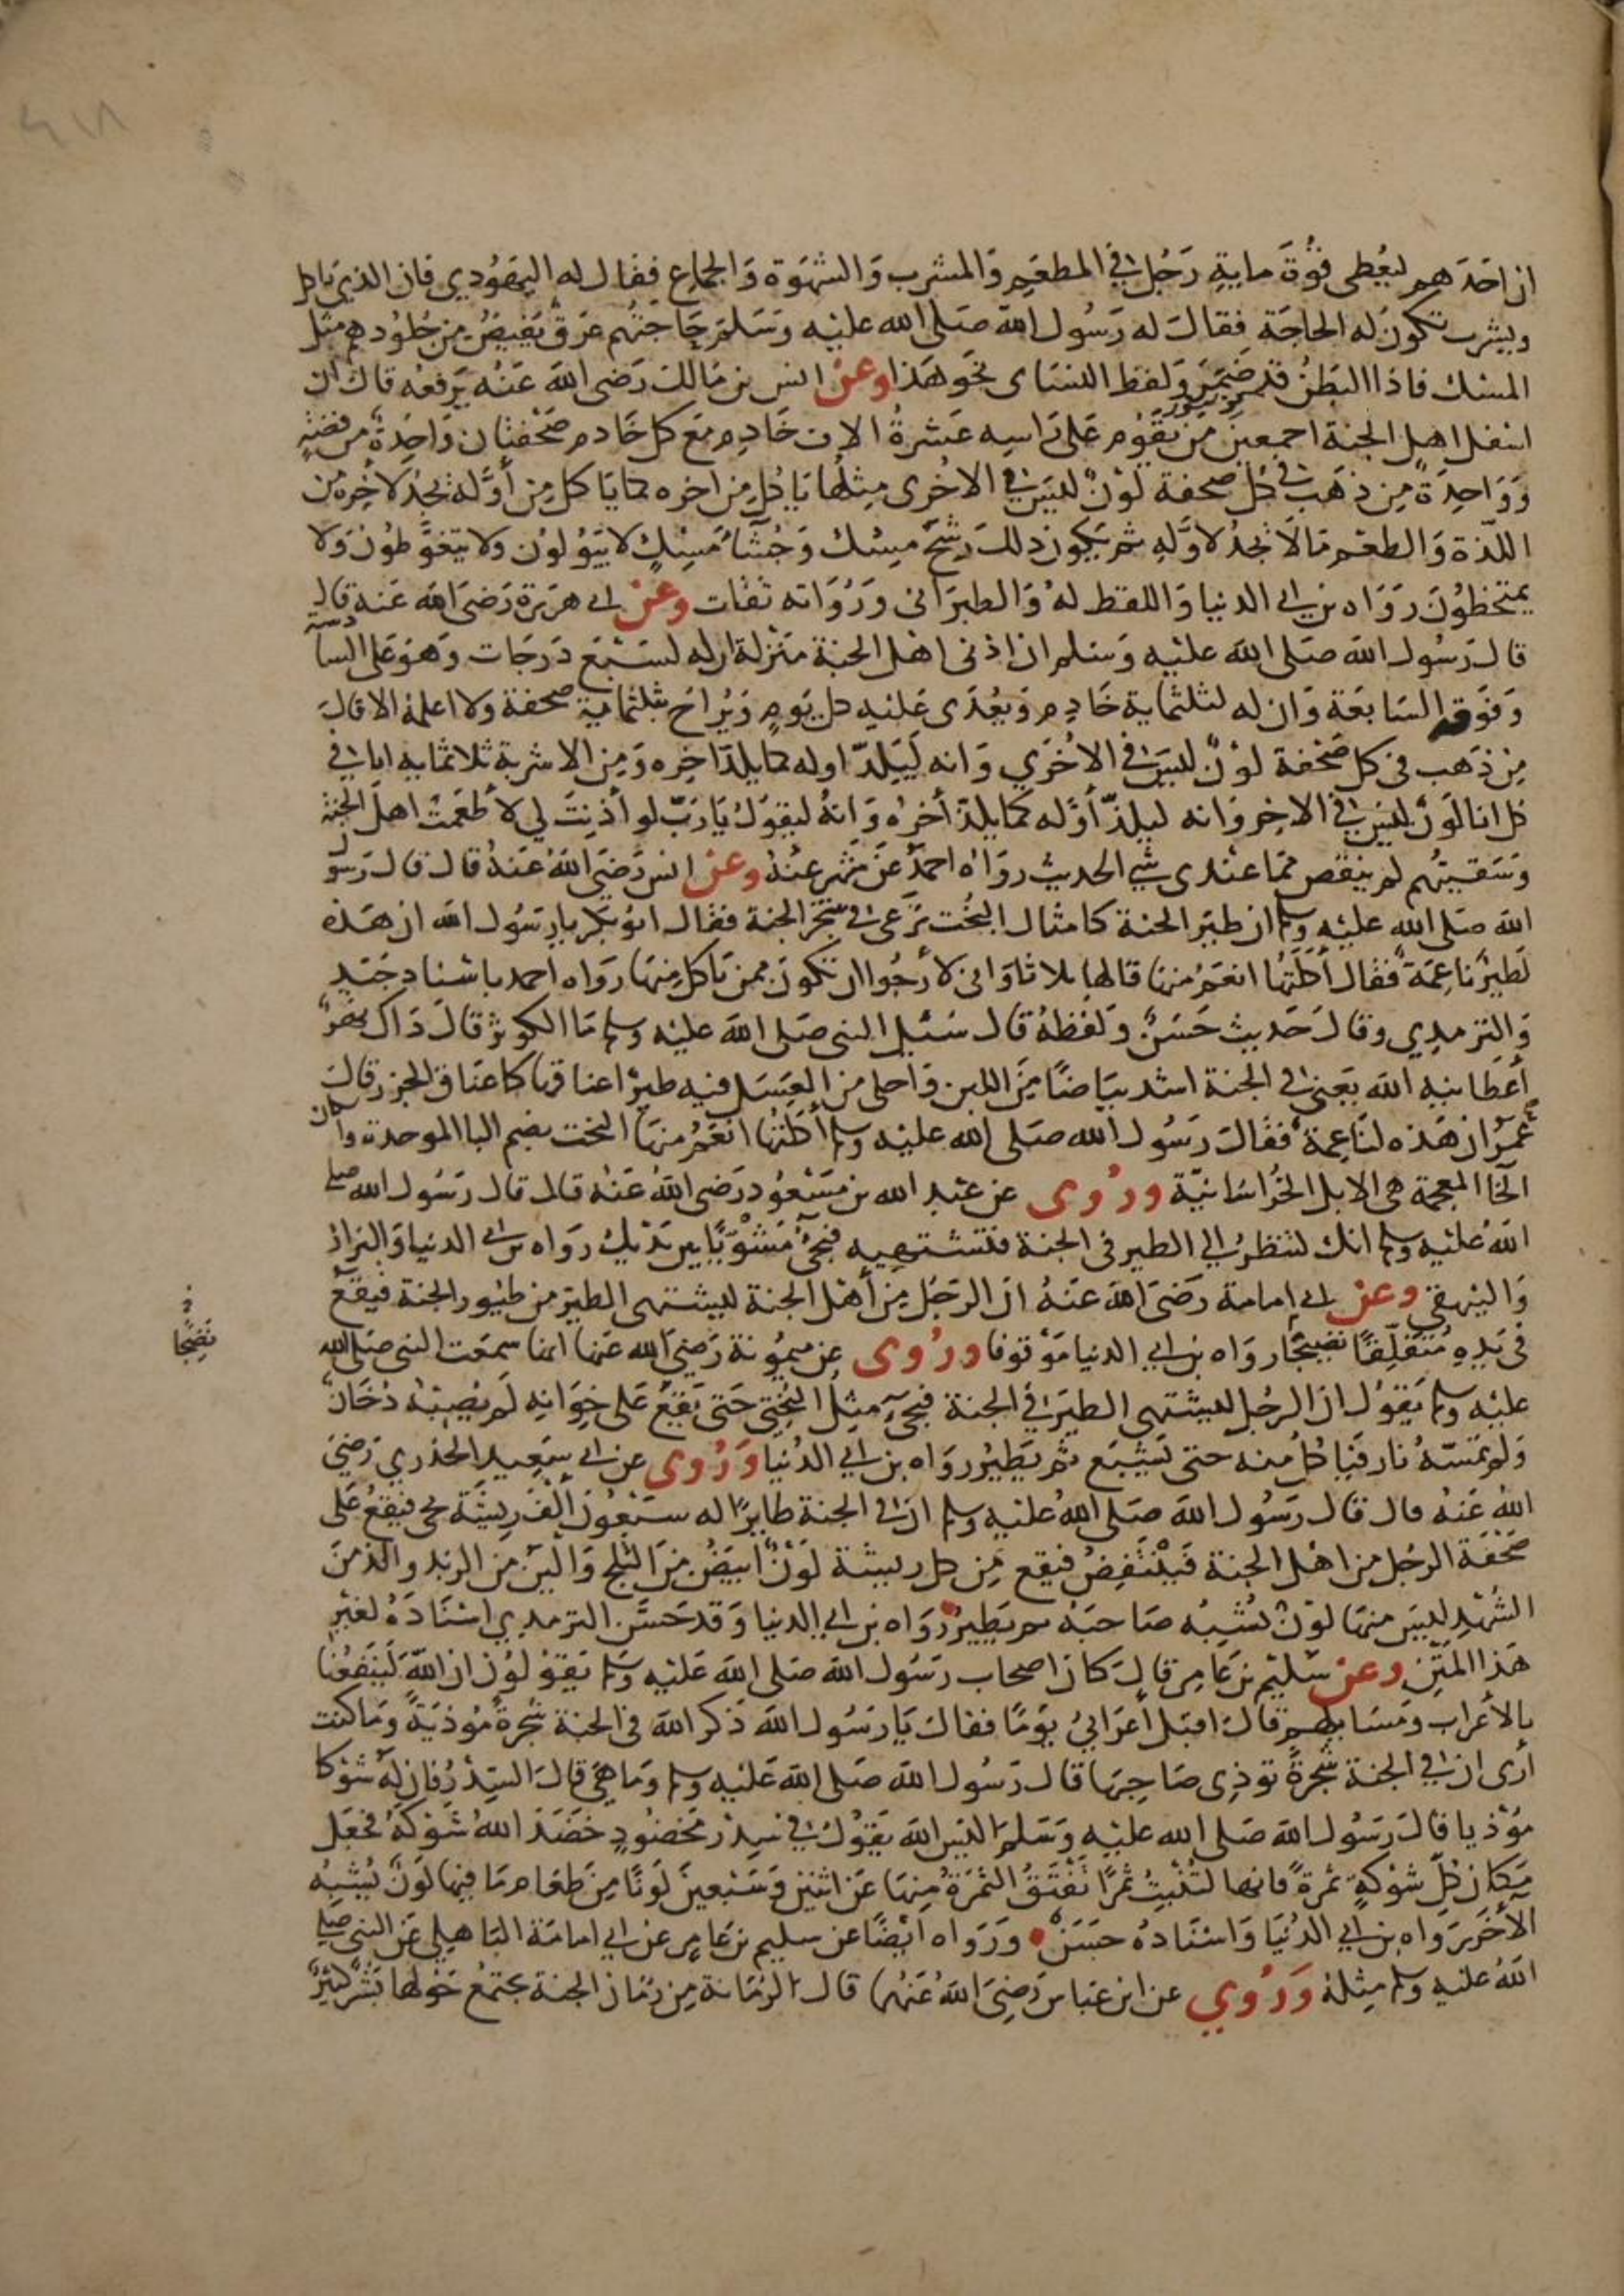 ان احدهم ليعطى قوة ماية رجل في المطعم والمشرب والشهوة والجماع فقال له اليهودي فان الذي ياكل
ويشرب تكون له الحاجة فقال له رسول الله صلى الله عليه وسلم حاجتهم عرق يفيض من جلودهم مثل
المسك فاذا البطن قد ضمر ولفظ النساى نحو هذا وعن انس بن مالك رضى الله عنه يرفعه قال ان
اسفل اهل الجنة اجمعين من يقوم على راسه عشرة الاف خادم مع كل خادم صحفتان واحدة من فضة
وواحدة من ذهب في كل صحفة لون ليس في الاخرى مثلها ياكل من اخره كما ياكل من أوله يجد لاخره من
اللذة والطعم ما لا يجد لاوله ثم يكون ذلك رشح مسك وجشاء مسك لا يبولون ولا يتغوطون ولا
يمتخطون رواه بن ابي الدنيا واللفظ له والطبرانى ورواته ثقات وعن ابي هريرة رضى الله عنه قال
قال رسول الله صلى الله عليه وسلم ان ادنى اهل الجنة منزلة ان له لسبع درجات وهو على السادسة
وفوقه السابعة وان له لثلثماية خادم ويغدى عليه كل يوم ويراح بثلثماية صحفة ولا اعلمه الا قال
من ذهب فى كل صحفة لون ليس في الاخرى وانه ليلذ اوله كما يلذ اخره ومن الاشربة ثلاثماية انا في
كل انا لون ليس في الاخر وانه ليلذ أوله كما يلذ أخره وانه ليقول يا رب لو أذنت لي لأطعمت اهل الجنة
وسقيتهم لم ينقص مما عندى شي الحديث رواه احمد عن شهر عنه وعن انس رضى الله عنه قال قال رسول
الله صلى الله عليه وسلم ان طير الجنة كامثال البخت ترعى في شجر الجنة فقال ابو بكر يا رسول الله ان هذه
لطير ناعمة فقال أكلتها انعم منها قالها ثلاثا وانى لأرجوا ان تكون ممن ياكل منها رواه احمد باسناد جيد
والترمدي وقال حديث حسن ولفظه قال سئل النبى صلى الله عليه وسلم ما الكوثر قال ذاك نهر
أعطانيه الله يعنى في الجنة اشد بياضا من اللبن واحلى من العسل فيه طير اعناقها كاعناق الجزر قال
عمر ان هذه لناعمة فقال رسول الله صلى الله عليه وسلم أكلتها انعم منها البخت بضم البا الموحدة واسكان
الخا المعجمة هى الابل الخراسانية وروى عن عبد الله بن مسعود رضى الله عنه قال قال رسول الله صلى
الله عليه وسلم انك لتنظر الي الطير فى الجنة فتشتهيه فيجئ مشويا بين يديك رواه بن ابي الدنيا والبزار
والبيهقي وعن ابي امامة رضى الله عنه ان الرجل من أهل الجنة ليشتهى الطير من طيور الجنة فيقع
فى يده متفلقا نضيجا رواه بن ابي الدنيا موقوفا وروى عن ميمونة رضى الله عنها انها سمعت النبى صلى الله
نضيجا
عليه وسلم يقول ان الرجل ليشتهى الطير في الجنة فيجئ مثل البختي حتى يقع على خوانه لم يصبه دخان
ولم تمسه نار فياكل منه حتى يشبع ثم يطير رواه بن ابي الدنيا وروى عن ابي سعيد الخدري رضى
الله عنه قال قال رسول الله صلى الله عليه وسلم ان في الجنة طايرا له سبعون ألف ريشة يجى فيقع على
صحفة الرجل من اهل الجنة فينتفض فيقع من كل ريشة لون ابيض من الثلج والين من الزبد والذ من
الشهد ليس منها لون يشبه صاحبه ثم يطير رواه بن ابي الدنيا وقد حسن الترمدي اسناده لغير
هذا المتن وعن سليم بن عامر قال كان اصحاب رسول الله صلى الله عليه وسلم يقولون ان الله لينفعنا
بالأعراب ومسايلهم قال اقبل أعرابي يوما فقال يا رسول الله ذكر الله فى الجنة شجرة مؤذية وما كنت
أرى ان في الجنة شجرة توذى صاحبها قال رسول الله صلى الله عليه وسلم وما هى قال السدر فان له شوكا
مؤذيا قال رسول الله صلى الله عليه وسلم اليس الله يقول في سدر مخضود خضد الله شوكه فجعل
مكان كل شوكة ثمرة فانها لتنبت ثمرا تفتق الثمرة منها عن اثنين وسبعين لونا من طعام ما فيها لون يشبه
الأخر رواه بن ابي الدنيا واسناده حسن ورواه ايضا عن سليم بن عامر عن ابي امامة الباهلي عن النبى صلى
الله عليه وسلم مثله وروي عن ابن عباس رضى الله عنهما قال الرمانة من رمان الجنة يجتمع حولها بشر كثير